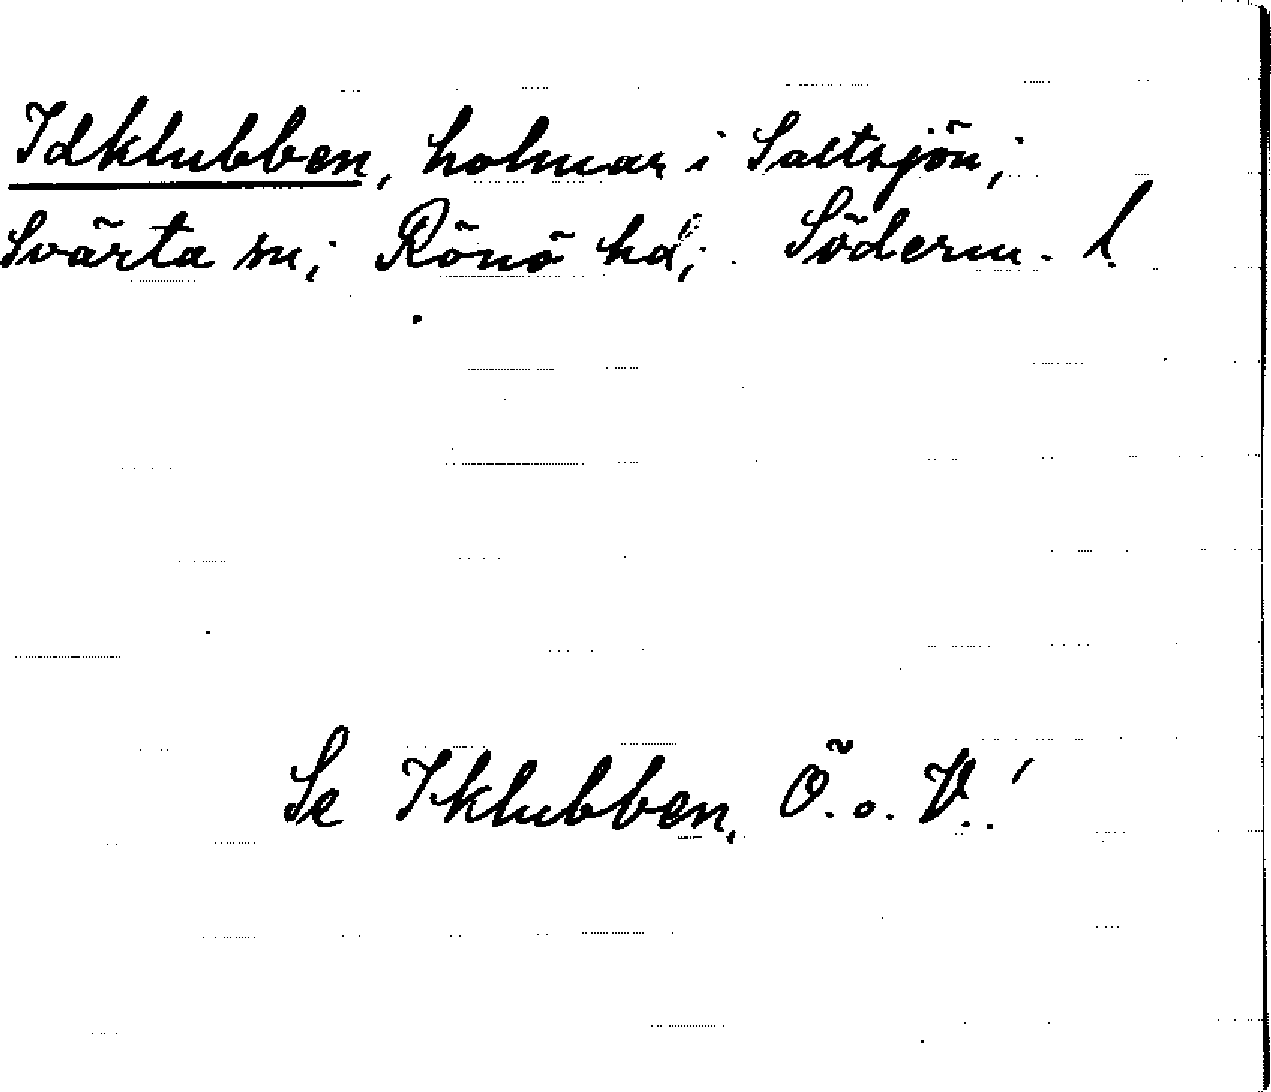 Idklubben, holmar i Saltsjön;
Svärta sn; Rönö hd; Söderm. l.
Se Iklubben, Ö. o. V.!